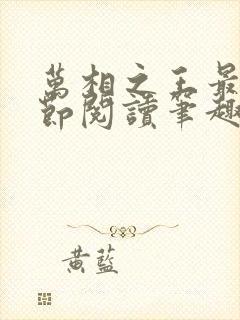 萬相之王最
節閱讀筆趣
黃藍